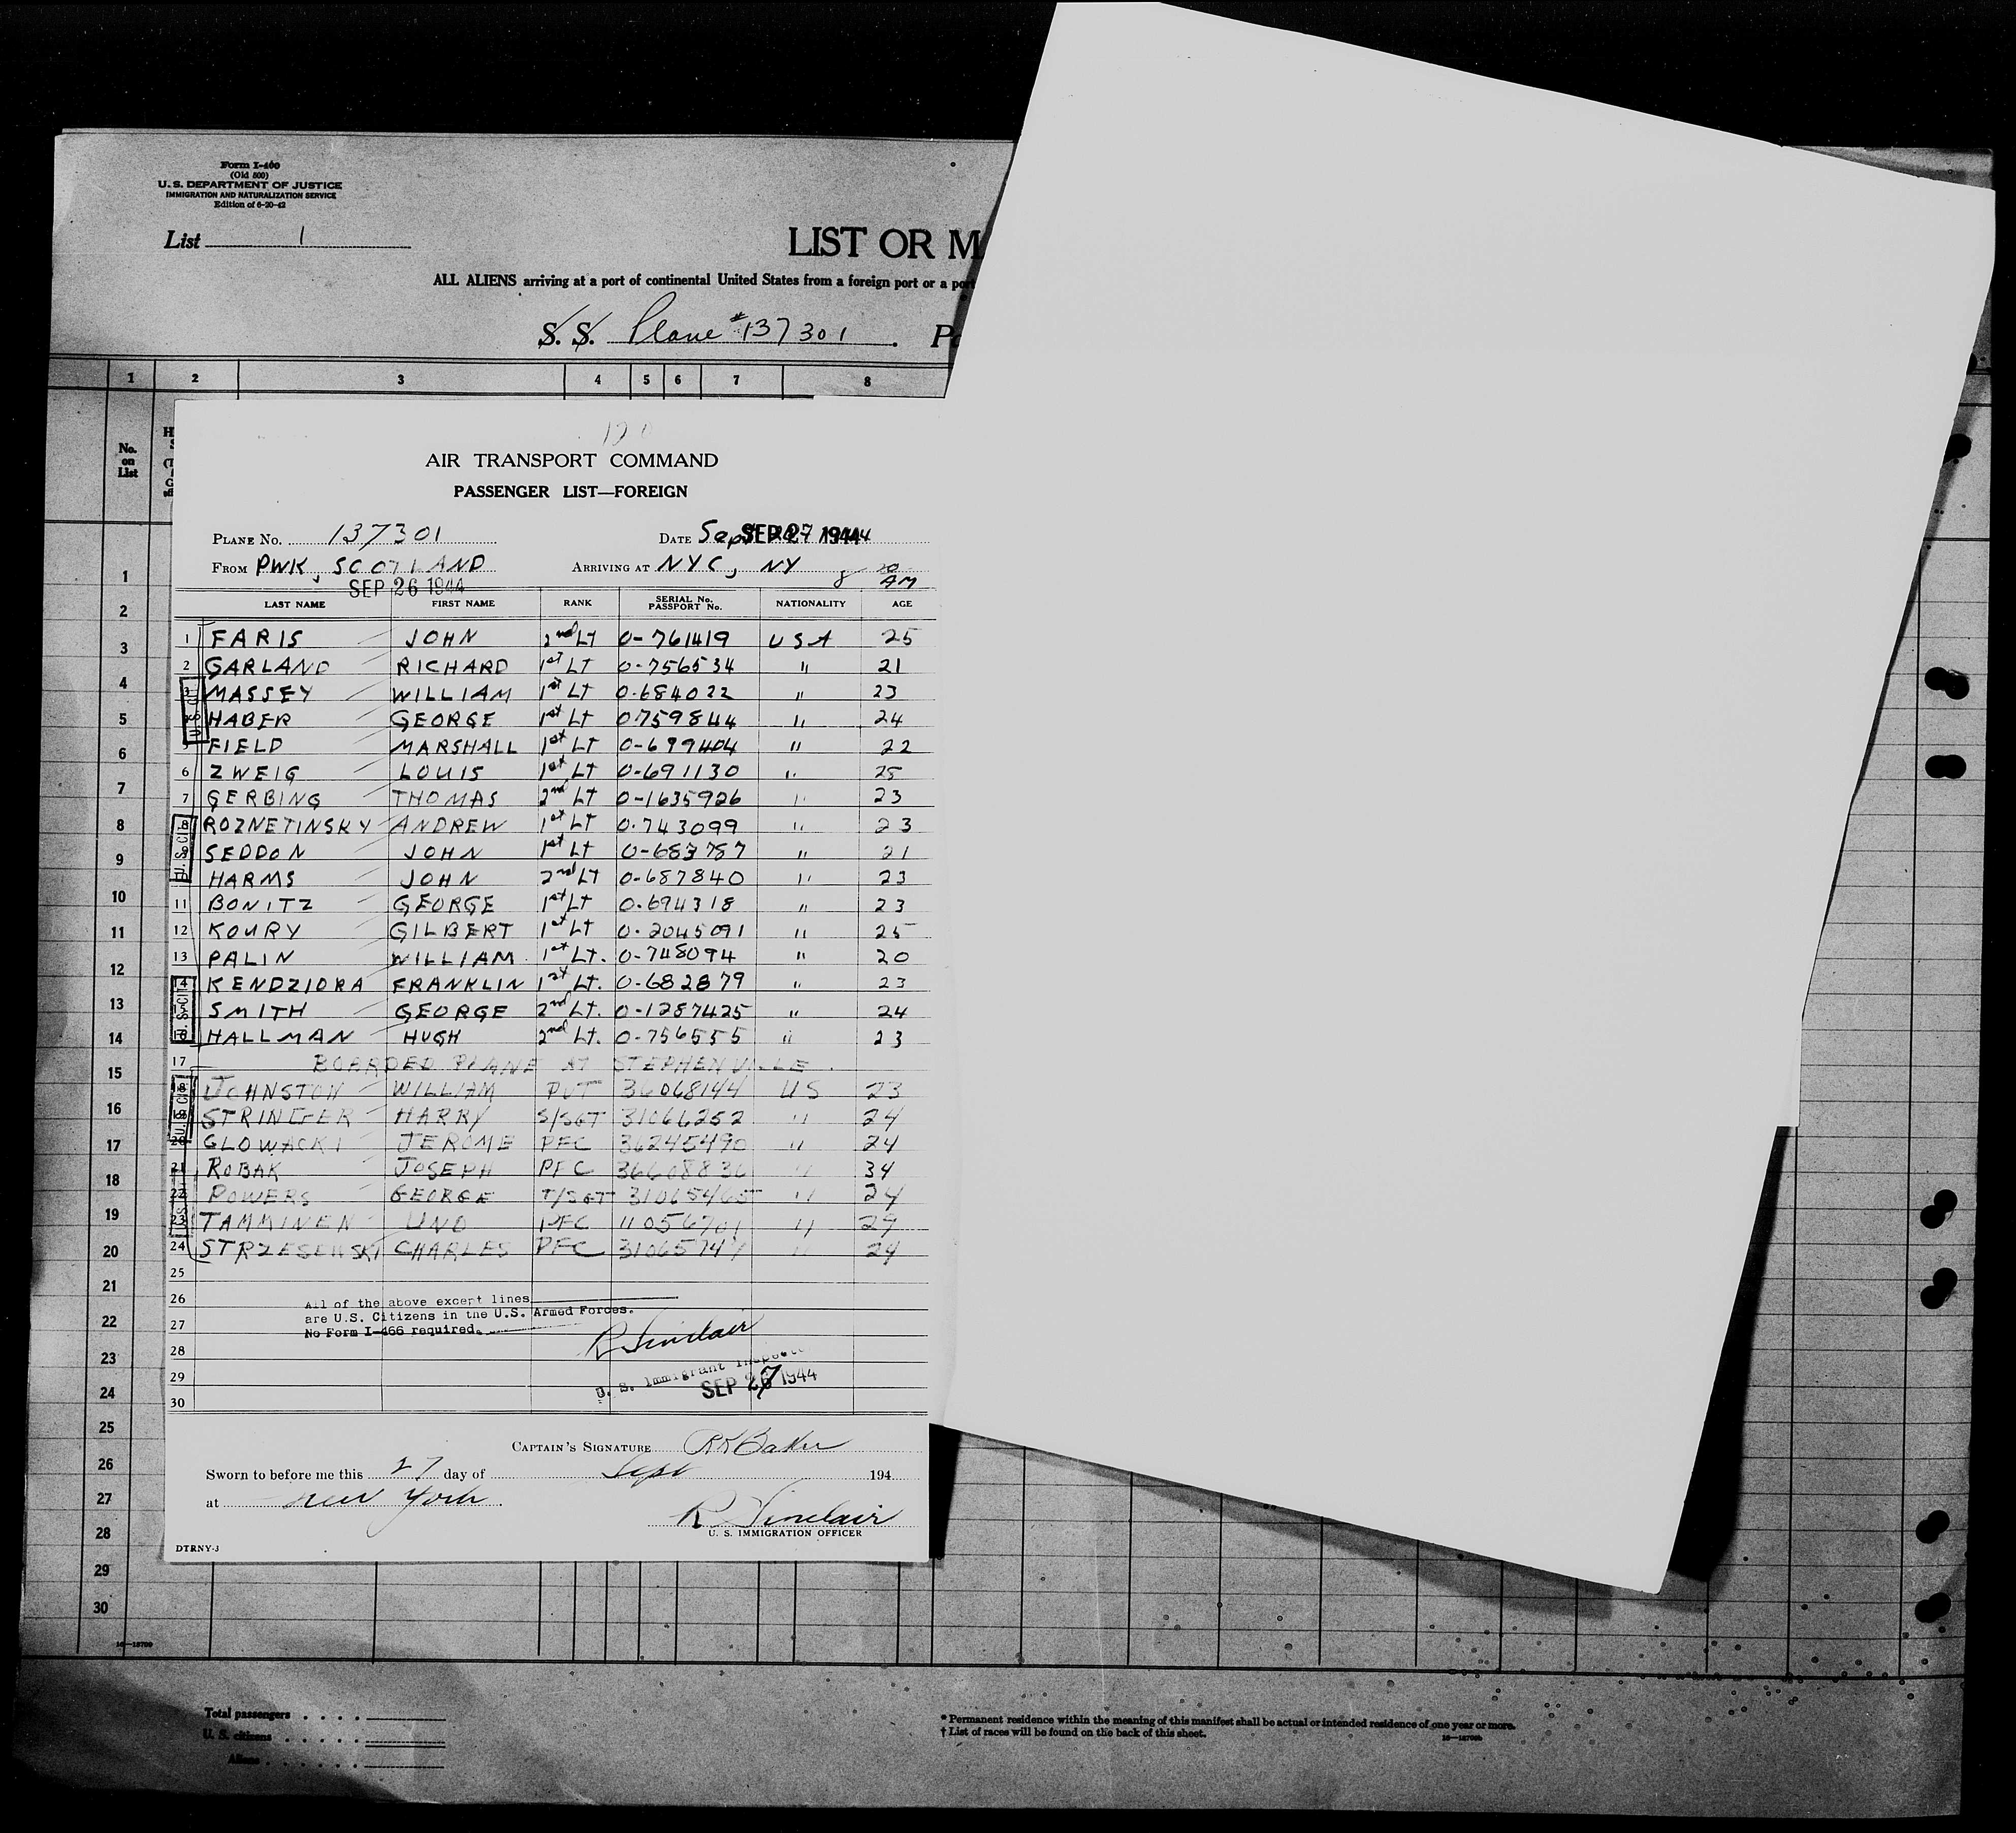 Form I-460
(Old 500)
U. S. DEPARTMENT OF JUSTICE
IMMIGRATION AND NATURALIZATION SERVICE
Edition of 6-20-42
List 1
LIST OR M
ALL ALIENS arriving at a port of continental United States from a foreign port or a port
S. S. Plane #137301
1 2 3 4 5 6 7 8
No. on List
120
AIR TRANSPORT COMMAND
PASSENGER LIST—FOREIGN
PLANE No. 137301 DATE Sept SEP 27 1944
FROM PWK, SCOTLAND ARRIVING AT NYC, NY 8 AM
SEP 26 1944
LAST NAME FIRST NAME RANK SERIAL No. PASSPORT No. NATIONALITY AGE
1 FARIS JOHN 2nd LT 0-761419 USA 25
2 GARLAND RICHARD 1st LT 0-756534 " 21
3 MASSEY WILLIAM 1st LT 0-684022 " 23
HABER GEORGE 1st LT 0759844 " 24
5 FIELD MARSHALL 1st LT 0-699404 " 22
6 ZWEIG LOUIS 1st LT 0-691130 " 25
7 GERBING THOMAS 2nd LT 0-1635926 " 23
8 ROZNETINSKY ANDREW 1st LT 0-743099 " 23
SEDDON JOHN 1st LT 0-683787 " 21
HARMS JOHN 2nd LT 0-687840 " 23
11 BONITZ GEORGE 1st LT 0-694318 " 23
12 KOURY GILBERT 1st LT 0-2045091 " 25
13 PALIN WILLIAM 1st LT. 0-748094 " 20
14 KENDZIORA FRANKLIN 1st LT. 0-682879 " 23
SMITH GEORGE 2nd LT. 0-1287425 " 24
16 HALLMAN HUGH 2nd LT. 0-756555 " 23
17 BOARDED PLANE AT STEPHENVILLE.
18 JOHNSTON WILLIAM PVT 36068144 US 23
STRINGER HARRY S/SGT 31066252 " 24
20 GLOWACKI JEROME PFC 36245490 " 24
21 ROBAK JOSEPH PFC 36608836 " 34
22 POWERS GEORGE T/SGT 31065465 " 24
23 TAMMINEN UNO PFC 11056701 " 29
24 STRZESEHSKI CHARLES PFC 31065747 " 24
25
26
27
28
29
30
U.S. CIT
U.S. CIT
U.S. CIT
U.S. CIT
All of the above except lines
are U.S. Citizens in the U.S. Armed Forces.
No Form I-466 required.
R Sinclair
U. S. Immigrant Inspector
SEP 27 1944
CAPTAIN'S SIGNATURE RK Baker
Sworn to before me this 27 day of Sept 194
at New York
R Sinclair
U. S. IMMIGRATION OFFICER
DTRNY-3
1
2
3
4
5
6
7
8
9
10
11
12
13
14
15
16
17
18
19
20
21
22
23
24
25
26
27
28
29
30
Total passengers
U. S. citizens
Aliens
* Permanent residence within the meaning of this manifest shall be actual or intended residence of one year or more.
† List of races will be found on the back of this sheet.